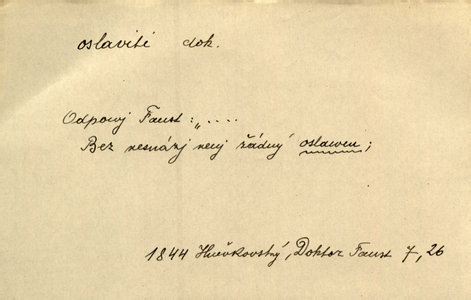 oslaviti dok.
Odpowj Faust: „....
Bez nesnázj nenj žádný oslawen;
1844 Hněvkovský, Doktor Faust 7, 26